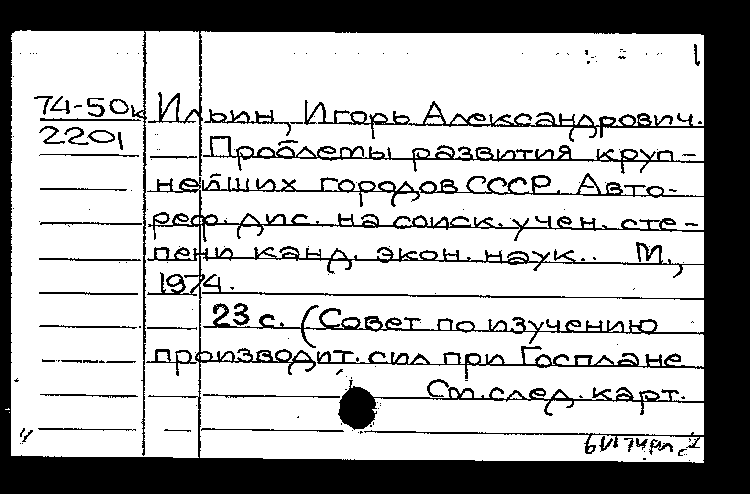 74-50к Ильин, Игорь Александрович.
2201
Проблемы развития круп-
нейших городов СССР. Авто-
реф. дис. на соиск. учен. сте-
пени канд. экон. наук.. М.,
1974.
23 с. (Совет по изучению
производит. сил при Госплане
См. след. карт.